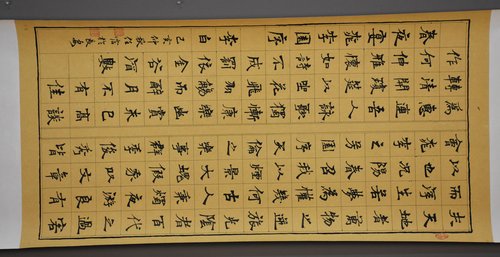 夫天地者萬物之逆旅光陰者百代之過客
而浮生若夢為懽幾何古人秉燭夜遊良有
以也況陽春召我以煙景大塊假我以文章
會桃李之芳園序天倫之樂事群季俊秀皆
為惠連吾人詠歌獨慚康樂幽賞未已高談
轉清開瓊筵以坐花飛羽觴而醉月不有佳
作何伸雅懷如詩不成罰依金谷酒數
春夜宴桃李園序 李白
仲秋